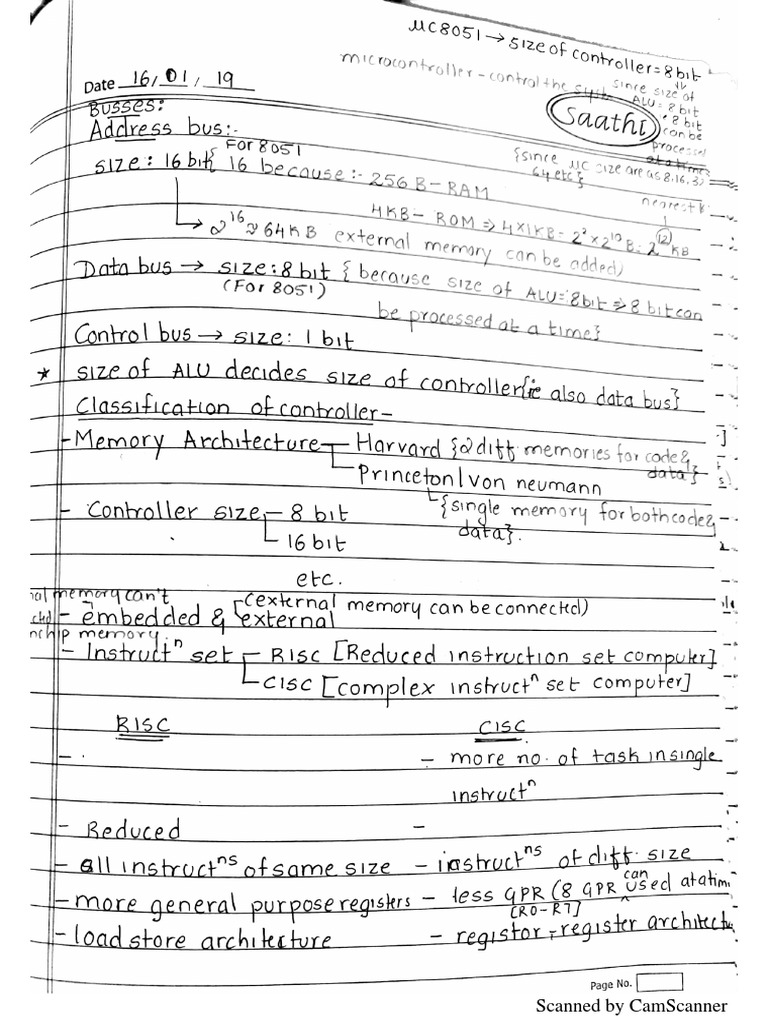 μC8051 → size of controller = 8bit
microcontroller - control the
since size of
ALU = 8bit
8bit
can be
processed
at a time}
Date 16/01/19
Saathi
Busses:
Address bus:-
{since μC size are as 8,16,32
64 etc}
For 8051
size: 16 bit{ 16 because:- 256 B - RAM
nearest
4KB - ROM ⇒ 4×1KB = 2² × 2¹⁰ B = 2¹² KB
→ 2¹⁶ ≈ 64KB external memory can be added)
Data bus → size: 8 bit { because size of ALU = 8bit ⇒ 8 bit can
(For 8051)
be processed at a time}
Control bus → size: 1 bit
* size of ALU decides size of controller{ie also data bus}
Classification of controller -
- Memory Architecture - Harvard {2 diff memories for code &
data}
Princeton/von neumann
{single memory for both code &
data}.
- Controller size - 8 bit
16 bit
etc.
memory can't
(external memory can be connected)
- embedded & external
chip memory.
- Instructⁿ set - RISC [Reduced instruction set computer]
CISC [complex instructⁿ set computer]
RISC CISC
- . - more no. of task in single
instructⁿ
- Reduced -
- all instructⁿˢ of same size - instructⁿˢ of diff. size
- more general purpose registers - less GPR (8 GPR can used at a tim
[R0-R7]
- load store architecture - registor-register architectu
Page No.
Scanned by CamScanner